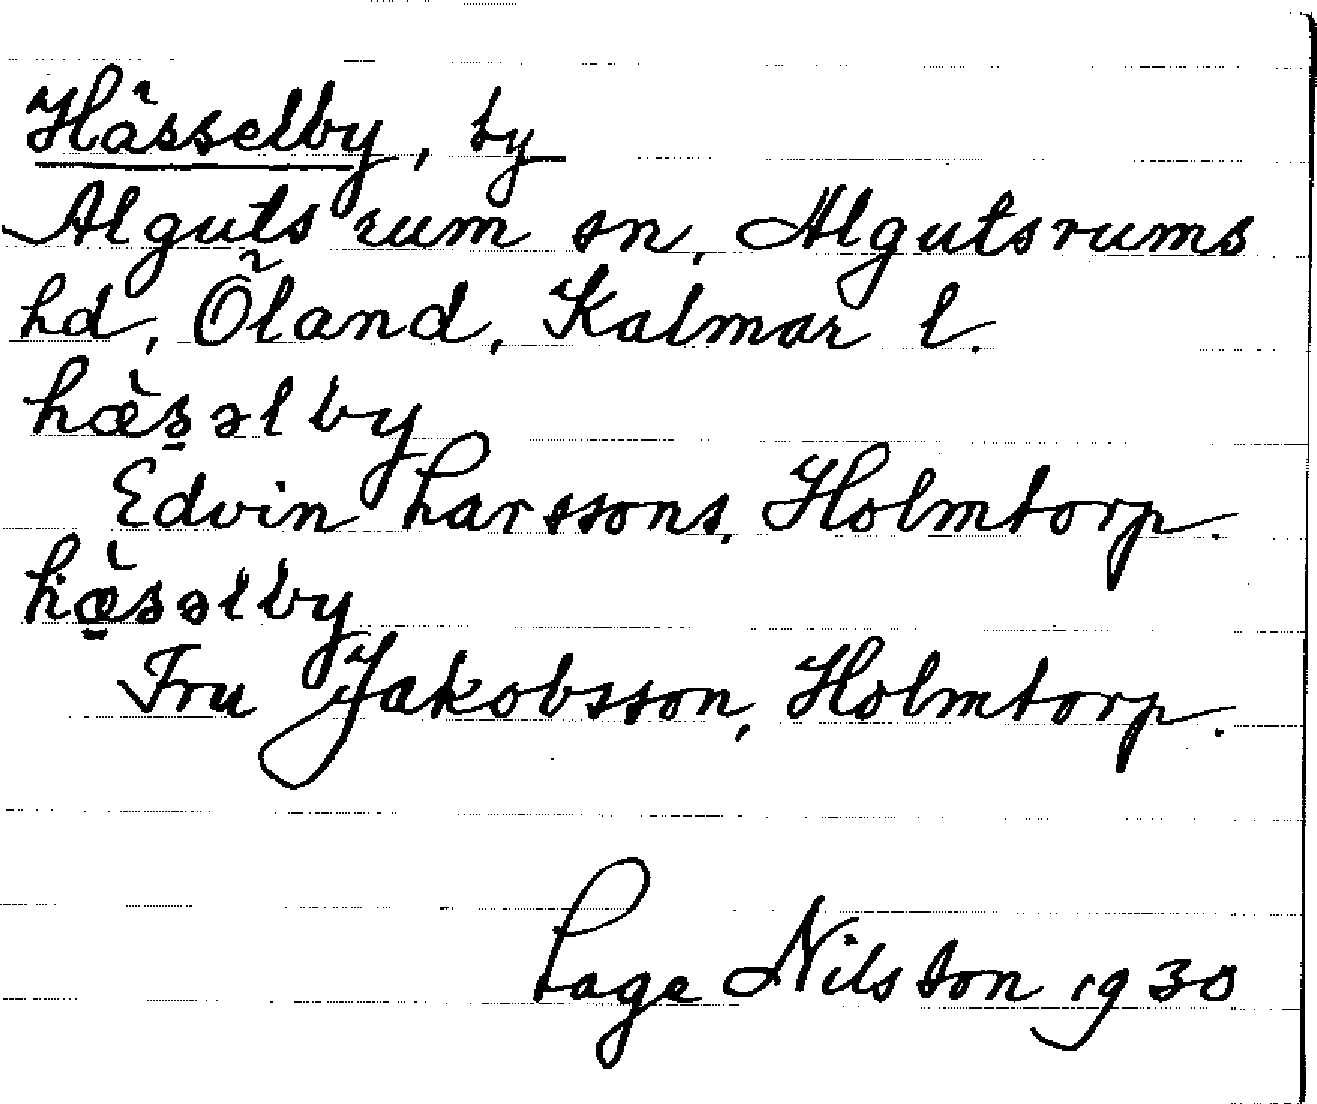 Hässelby, by
Algutsrum sn, Algutsrums
hd, Öland, Kalmar l.
hæ̀s̠əlby
Edvin Larssons, Holmtorp.
hæ̠̀səlby
Fru Jakobsson, Holmtorp.
Lage Nilsson 1930